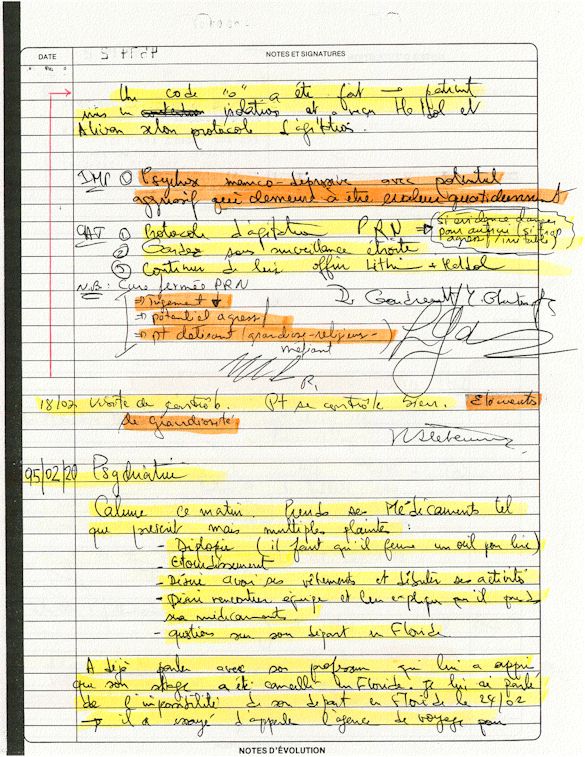 DATE
NOTES ET SIGNATURES
Un code "o" a été fait → patient
mis en isolation et a reçu Haldol et
Ativan selon protocole d'agitation.
IMP ① Psychose maniaco-dépressive avec potentiel
agressif qui demeure à être évaluer quotidiennement
CAT ① Protocole d'agitation PRN → si évidence de danger
pour autrui (si trop
agressif/irritable)
② Gardez sous surveillance étroite
③ Continuer de lui offrir Lithi + Haldol
N.B: Cure fermée PRN
⇒ Jugement ↓
⇒ potentiel agressif
⇒ pt délirant (grandiose-religieux-
méfiant
Dr Gaudreault/
R1
18/02 Visite de contrôle. Pt se contrôle bien. Éléments
de grandiosité.
95/02/20 Psychiatrie
Calme ce matin. Prends ses Médicaments tel
que prescrit mais multiples plaintes :
- Diplopie (il faut qu'il ferme un oeil pour lire)
- Étourdissement
- Désire avoir ses vêtements et débuter ses activités
- Désire rencontrer équipe et leur expliquer qu'il prends
ses médicaments
- questions sur son départ en Floride
A déjà parler avec son professeur qui lui a appris
que son stage a été cancellé en Floride. Je lui ai parlé
de l'impossibilité de son départ en Floride le 24/02
→ il a essayé d'appeler l'agence de voyage pour
NOTES D'ÉVOLUTION